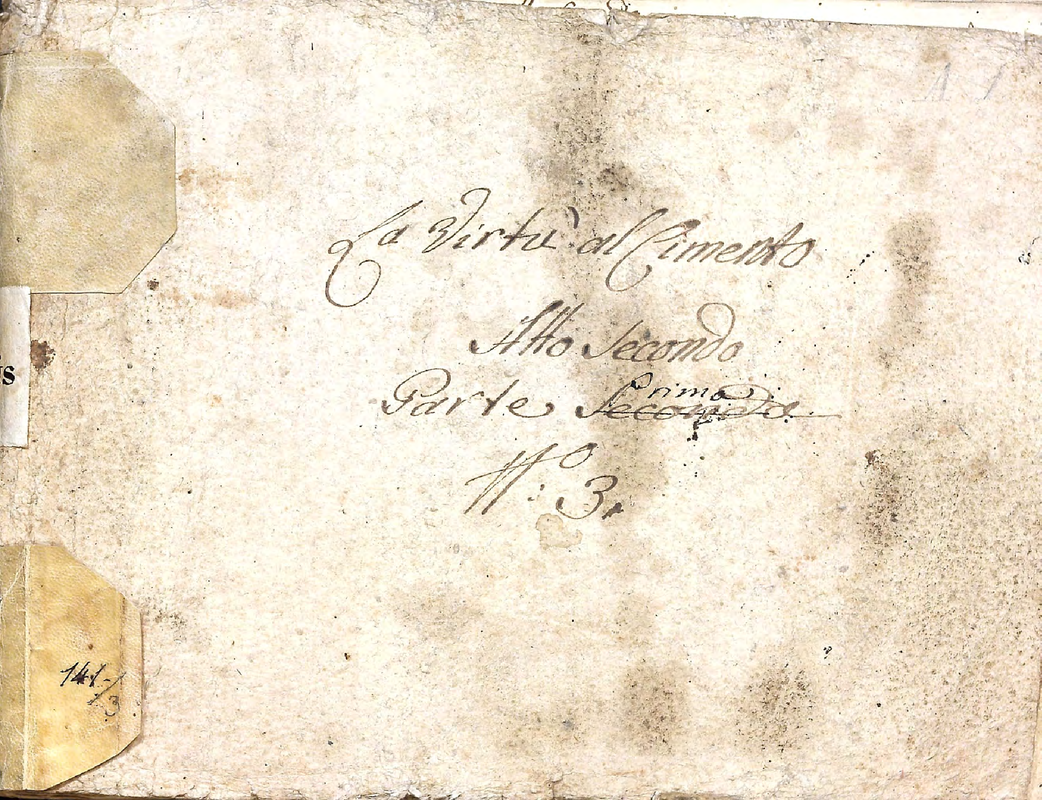 La Virtù al Cimento
Atto Secondo
Prima
Parte Seconda
Nº: 3.
s
141/3